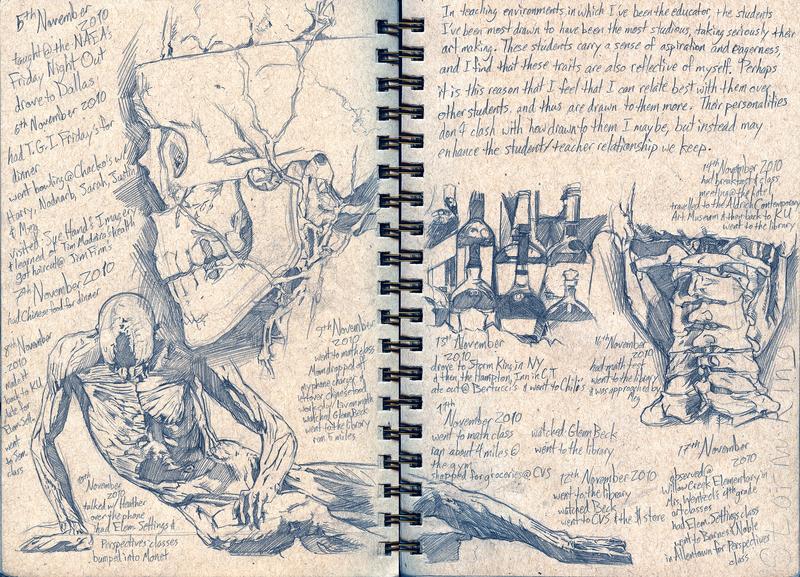 5th November
2010
taught @ the NAEA's
Friday Night Out
drove to Dallas
6th November 2010
had T.G.I. Friday's for
dinner
went bowling @ Chacko's w/
Harry, Sarah, Justin
& Meg
visited Sue Hand's Imagery
& learned of Tim Madeira's health
got haircut @ Jim Finns
7th November 2010
had Chinese food for dinner
8th November
2010
back to KU
late for
Elem. Sett.
went
to Sem.
class
9th November
2010
went to math class
Mom dropped off
my phone charger &
leftover chinese food
watched Glenn Beck
went to the library
ran 5 miles
10th
November
2010
talked w/ Heather
over the phone
had Elem. Settings &
Perspectives classes
bumped into Monet
In teaching environments in which I've been the educator, the students
I've been most drawn to have been the most studious, taking seriously their
art making. These students carry a sense of aspiration and eagerness,
and I find that these traits are also reflective of myself. Perhaps
it is this reason that I feel that I can relate best with them over
other students, and thus are drawn to them more. Their personalities
don't clash with how drawn to them I may be, but instead may
enhance the student/teacher relationship we keep.
14th November 2010
had breakfast & class
meeting @ the hotel
travelled to the Aldrich Contemporary
Art Museum & then back to KU
went to the library
13th November
2010
drove to Storm King in NY
& then the Hampton Inn in CT
ate out @ Bertucci's & went to Chili's
16th November
2010
had math test
went to the library
& was approached by
11th
November 2010
went to math class
ran about 4 miles @
the gym
shopped for groceries @ CVS
watched Glenn Beck
went to the library
12th November 2010
went to the library
watched Beck
went to CVS & the $1 store
17th November
2010
observed @
Willow Creek Elementary in
Mrs. 4th grade
art classes
had Elem. Settings class
went to Barnes & Noble
in Allentown for Perspectives
class